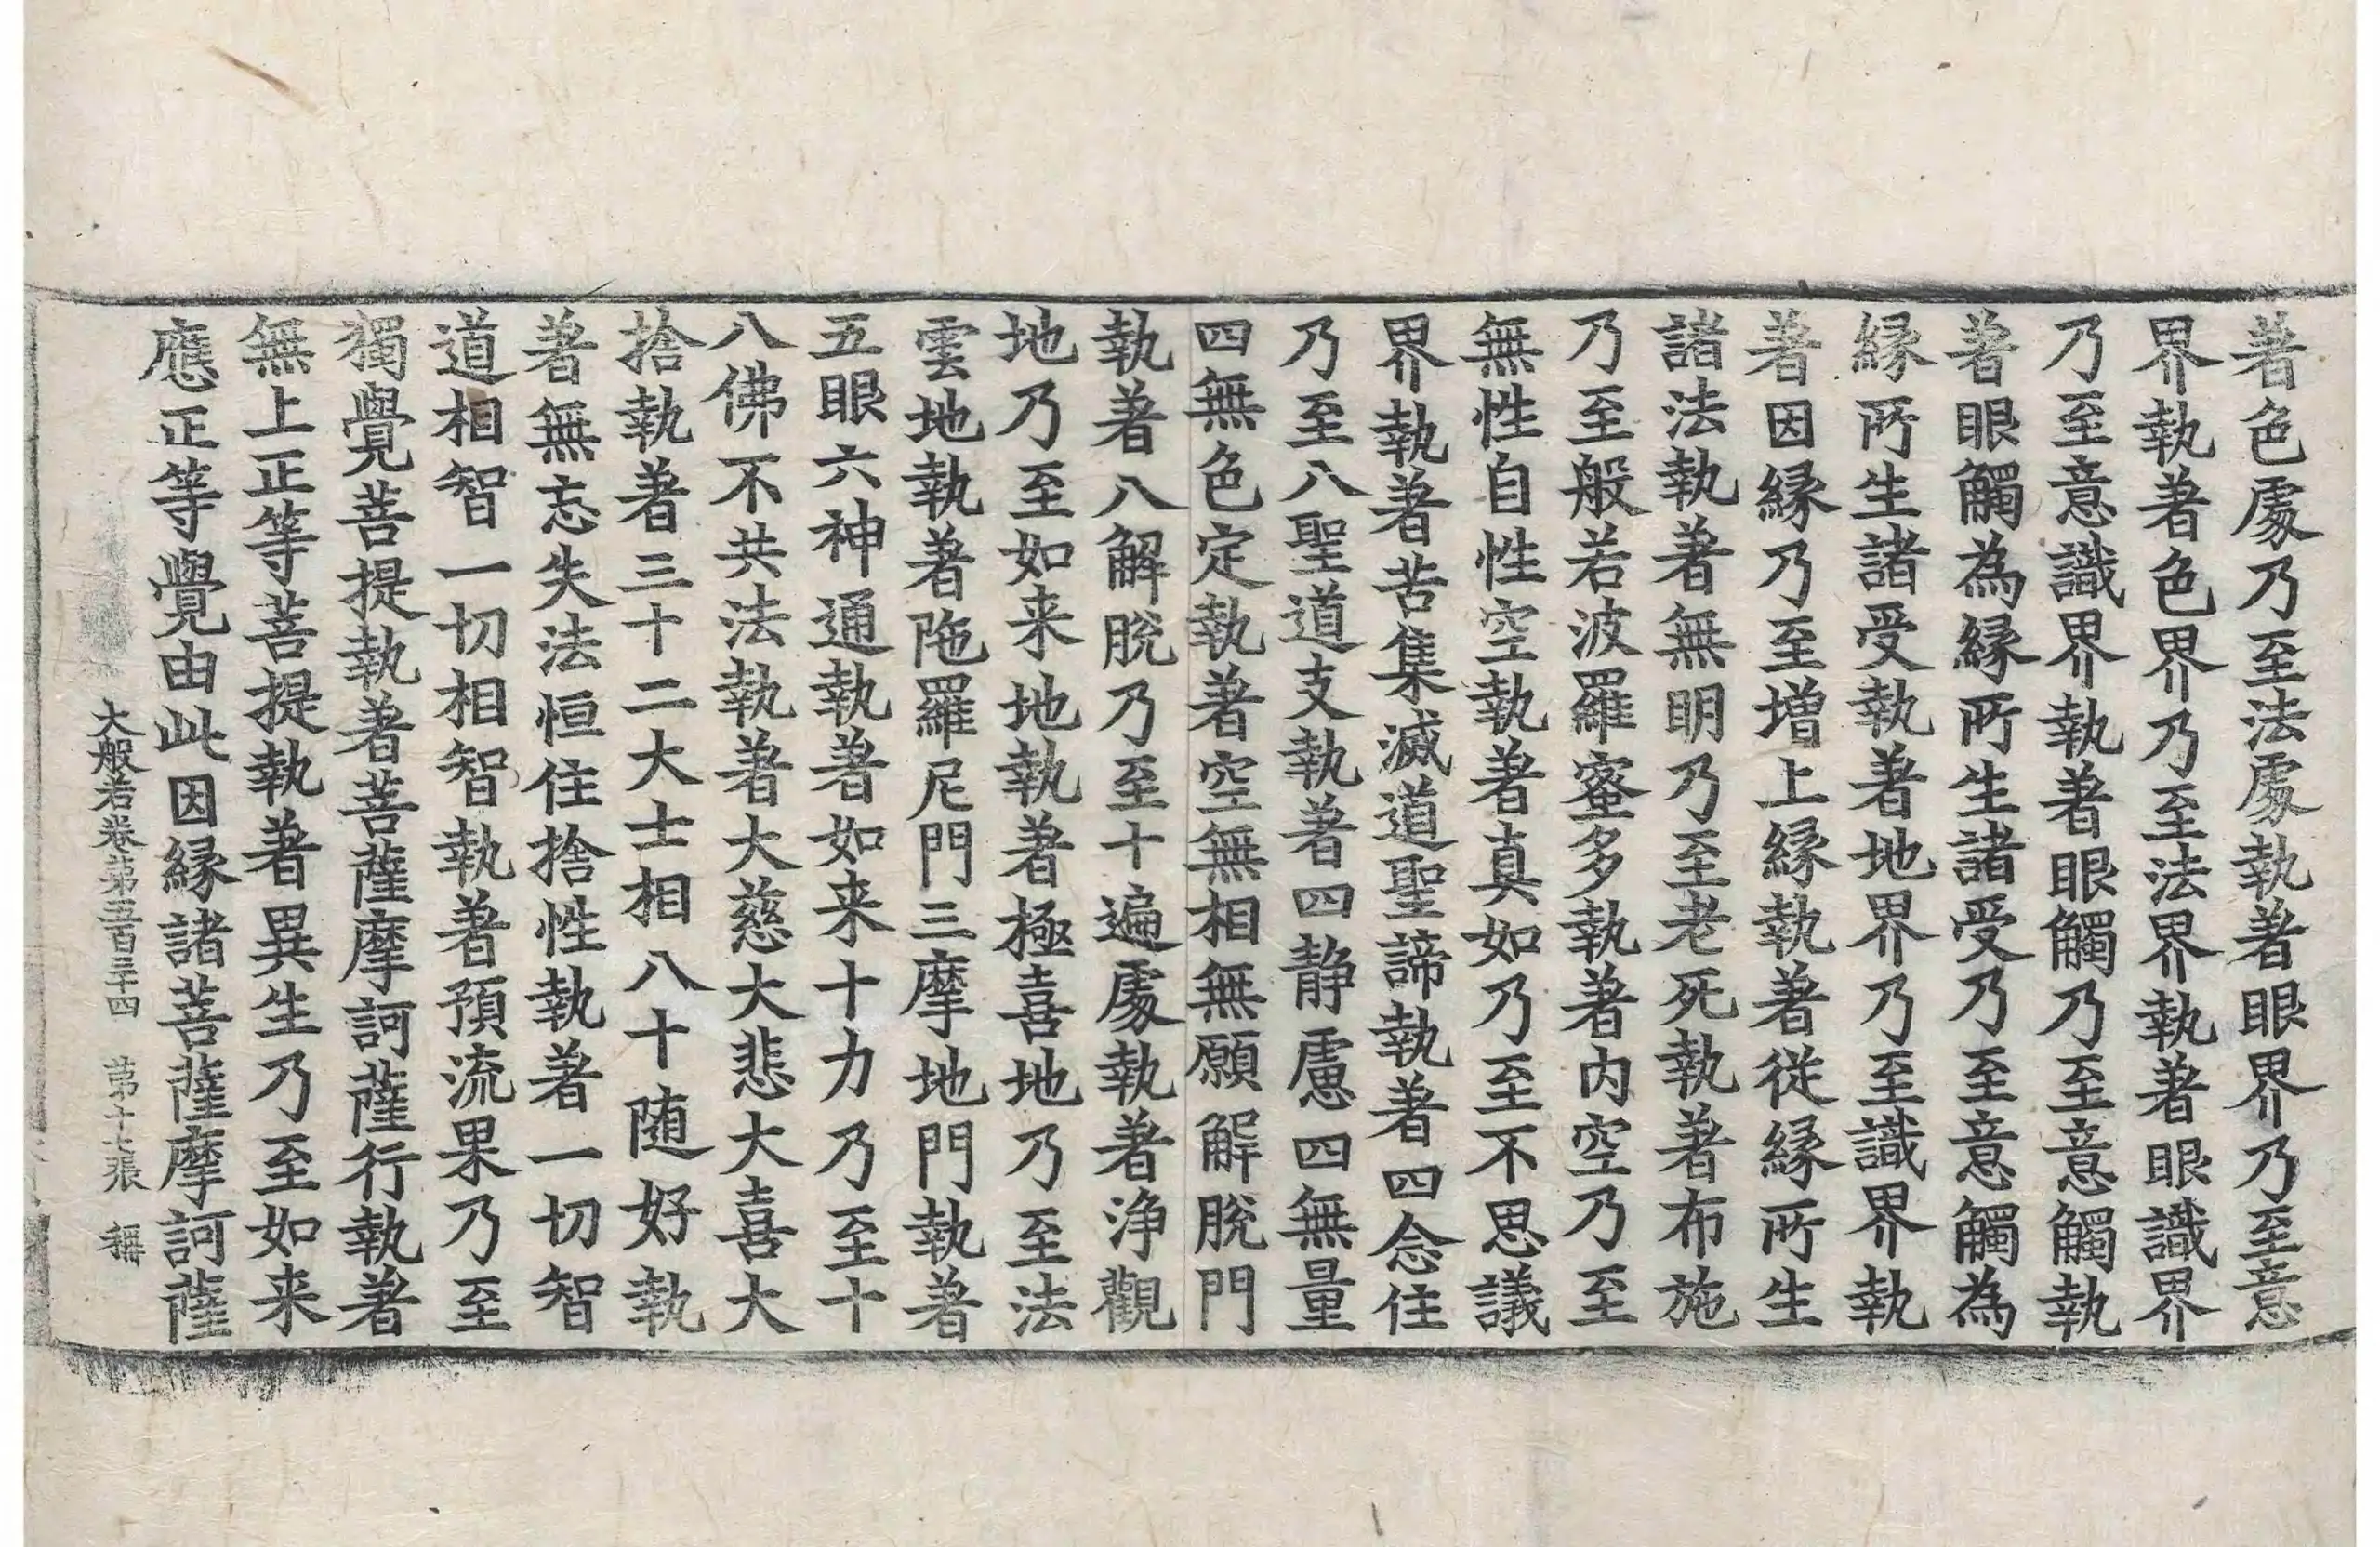 著色處乃至法處執著眼界乃至意
界執著色界乃至法界執著眼識界
乃至意識界執著眼觸乃至意觸執
著眼觸為緣所生諸受乃至意觸為
緣所生諸受執著地界乃至識界執
著因緣乃至增上緣執著從緣所生
諸法執著無明乃至老死執著布施
乃至般若波羅蜜多執著內空乃至
無性自性空執著真如乃至不思議
界執著苦集滅道聖諦執著四念住
乃至八聖道支執著四静慮四無量
四無色定執著空無相無願解脫門
執著八解脫乃至十遍處執著淨觀
地乃至如来地執著極喜地乃至法
雲地執著陁羅尼門三摩地門執著
五眼六神通執著如来十力乃至十
八佛不共法執著大慈大悲大喜大
捨執著三十二大士相八十随好執
著無忘失法恒住捨性執著一切智
道相智一切相智執著預流果乃至
獨覺菩提執著菩薩摩訶薩行執著
無上正等菩提執著異生乃至如来
應正等覺由此因緣諸菩薩摩訶薩
大般若卷第五百三十四 第十七張 稱